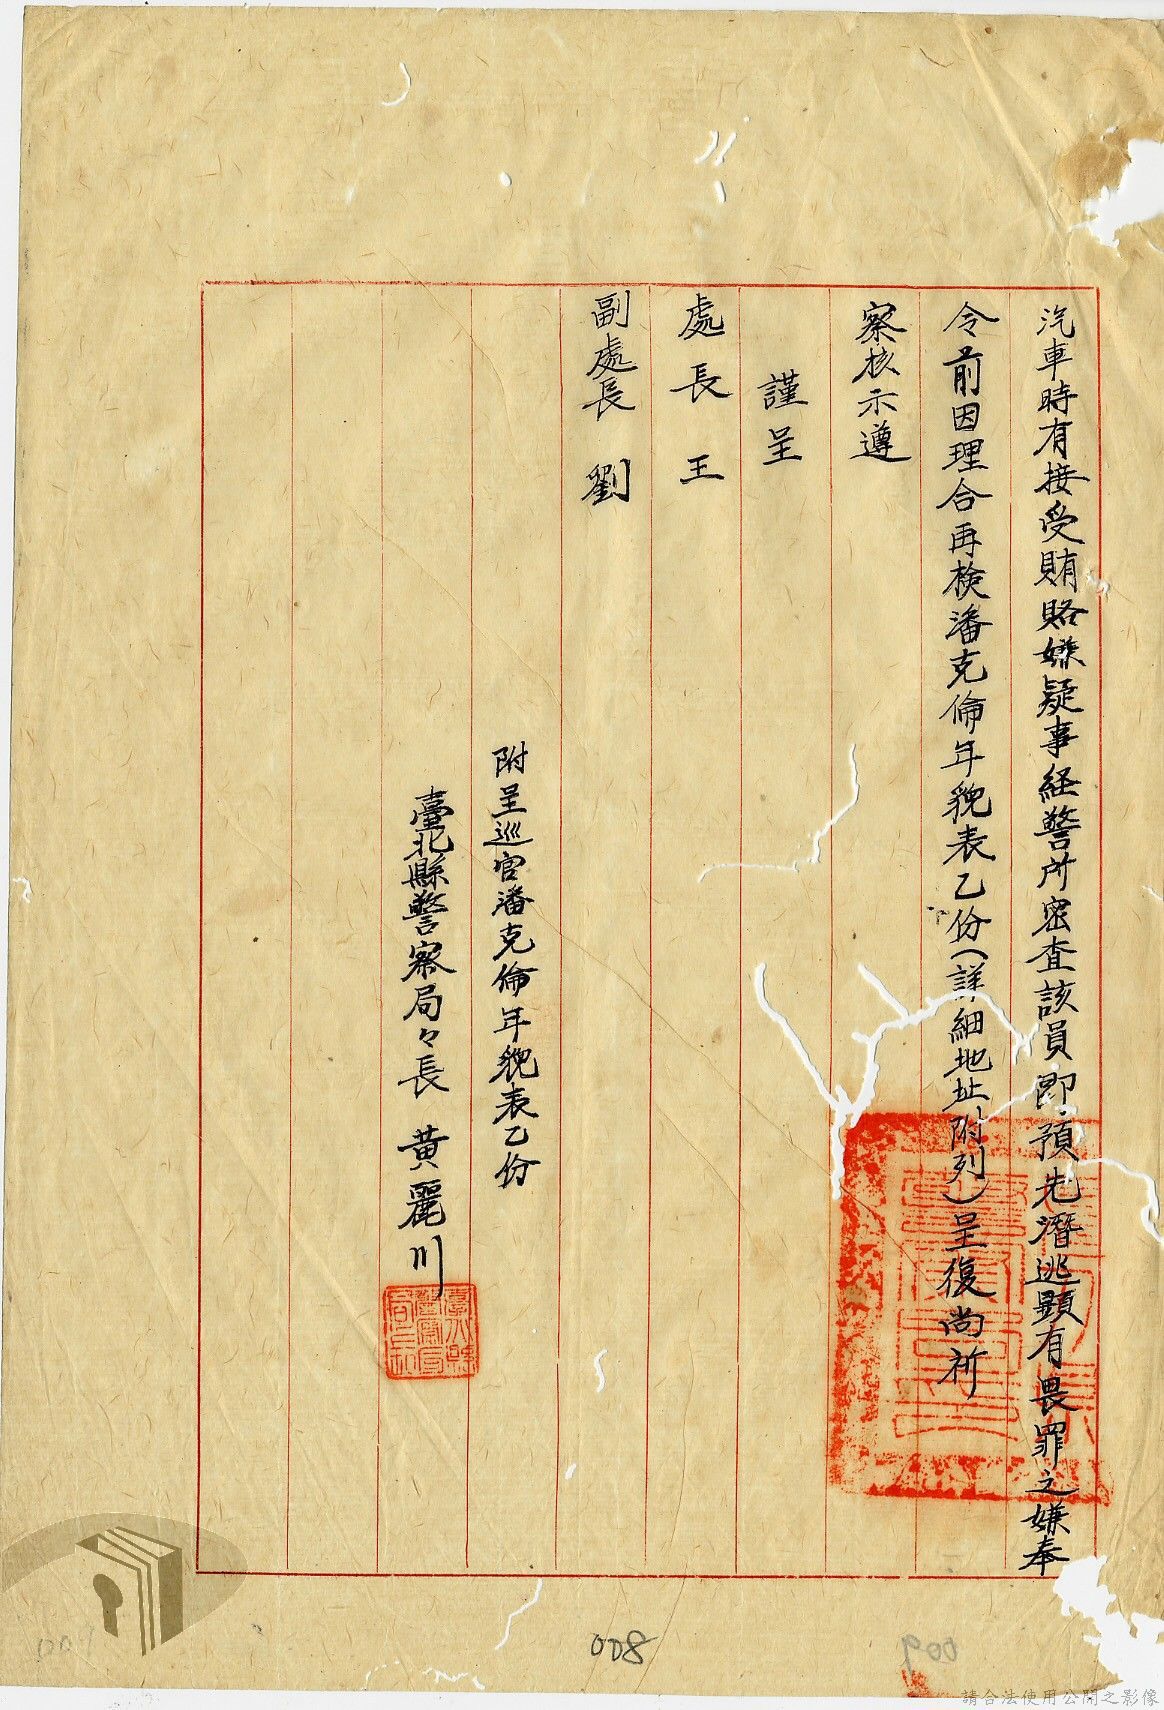 汽車時有接受賄賂嫌疑事経警所密查該員即預先潛逃顯有畏罪之嫌奉
令前因理合再檢潘克倫年貌表乙份(詳細地址附列)呈復尚祈
察核示遵
謹呈
處長 王
副處長 劉
附呈巡官潘克倫年貌表乙份
臺北縣警察局々長 黃麗川
008
009
請合法使用公開之影像